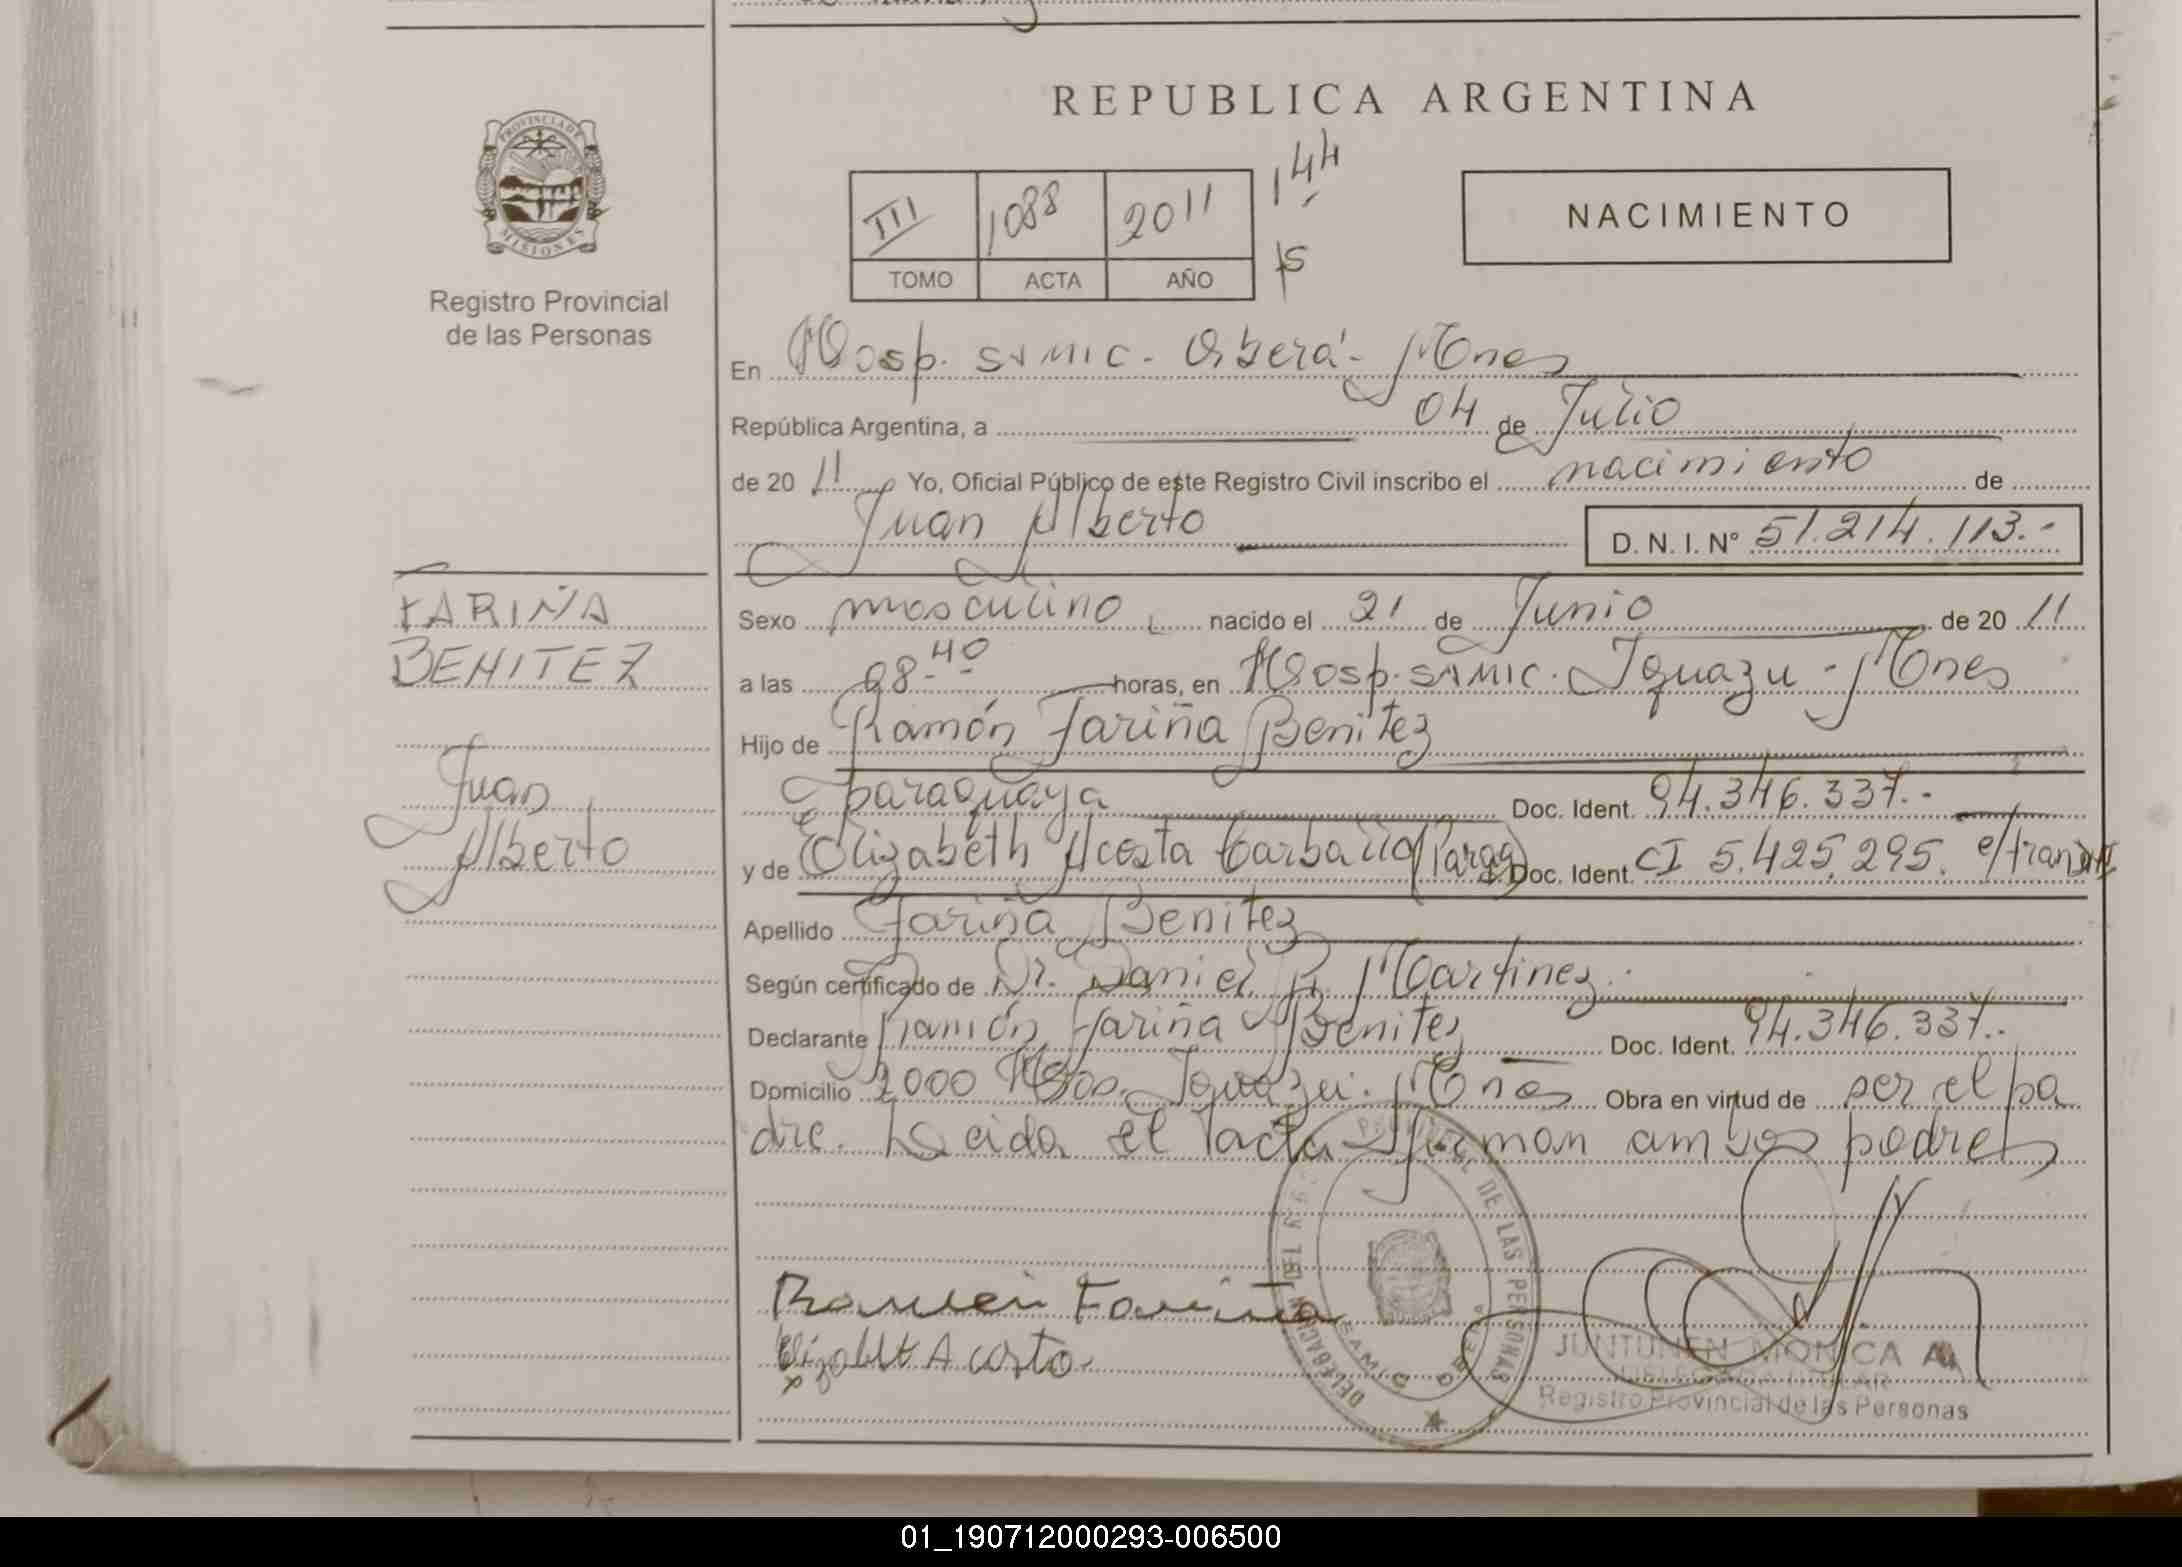 REPUBLICA ARGENTINA
PROVINCIA DE
MISIONES
Registro Provincial
de las Personas
III 1088 2011 144
TOMO ACTA AÑO 15
NACIMIENTO
En Hosp. SAMIC - Oberá - Mnes
República Argentina, a 04 de Julio
de 2011 Yo, Oficial Público de este Registro Civil inscribo el nacimiento de
Juan Alberto D. N. I. Nº 51.214.113.-
FARIÑA
BENITEZ
Juan
Alberto
Sexo masculino nacido el 21 de Junio de 2011
a las 08-40 horas, en Hosp. SAMIC. Iguazu - Mnes
Hijo de Ramón Fariña Benitez
paraguaya Doc. Ident. 94.346.337.-
y de Elizabeth Acosta Carballo Doc. Ident. CI 5.425.295. e/
Apellido Fariña Benitez
Según certificado de Dr. Daniel R. Martinez.
Declarante Ramón Fariña Benitez Doc. Ident. 94.346.337.-
Domicilio 2000 Has. Iguazu. Mnes Obra en virtud de ser el pa
dre. Leida el acta firman ambos padres
Ramon Fariña
Elizabet Acosta
DE LAS PERSONAS
DELEGACION
SAMIC OBERA
JUNTUNEN MONICA A.
DELEGADA TITULAR
Registro Provincial de las Personas
01_190712000293-006500